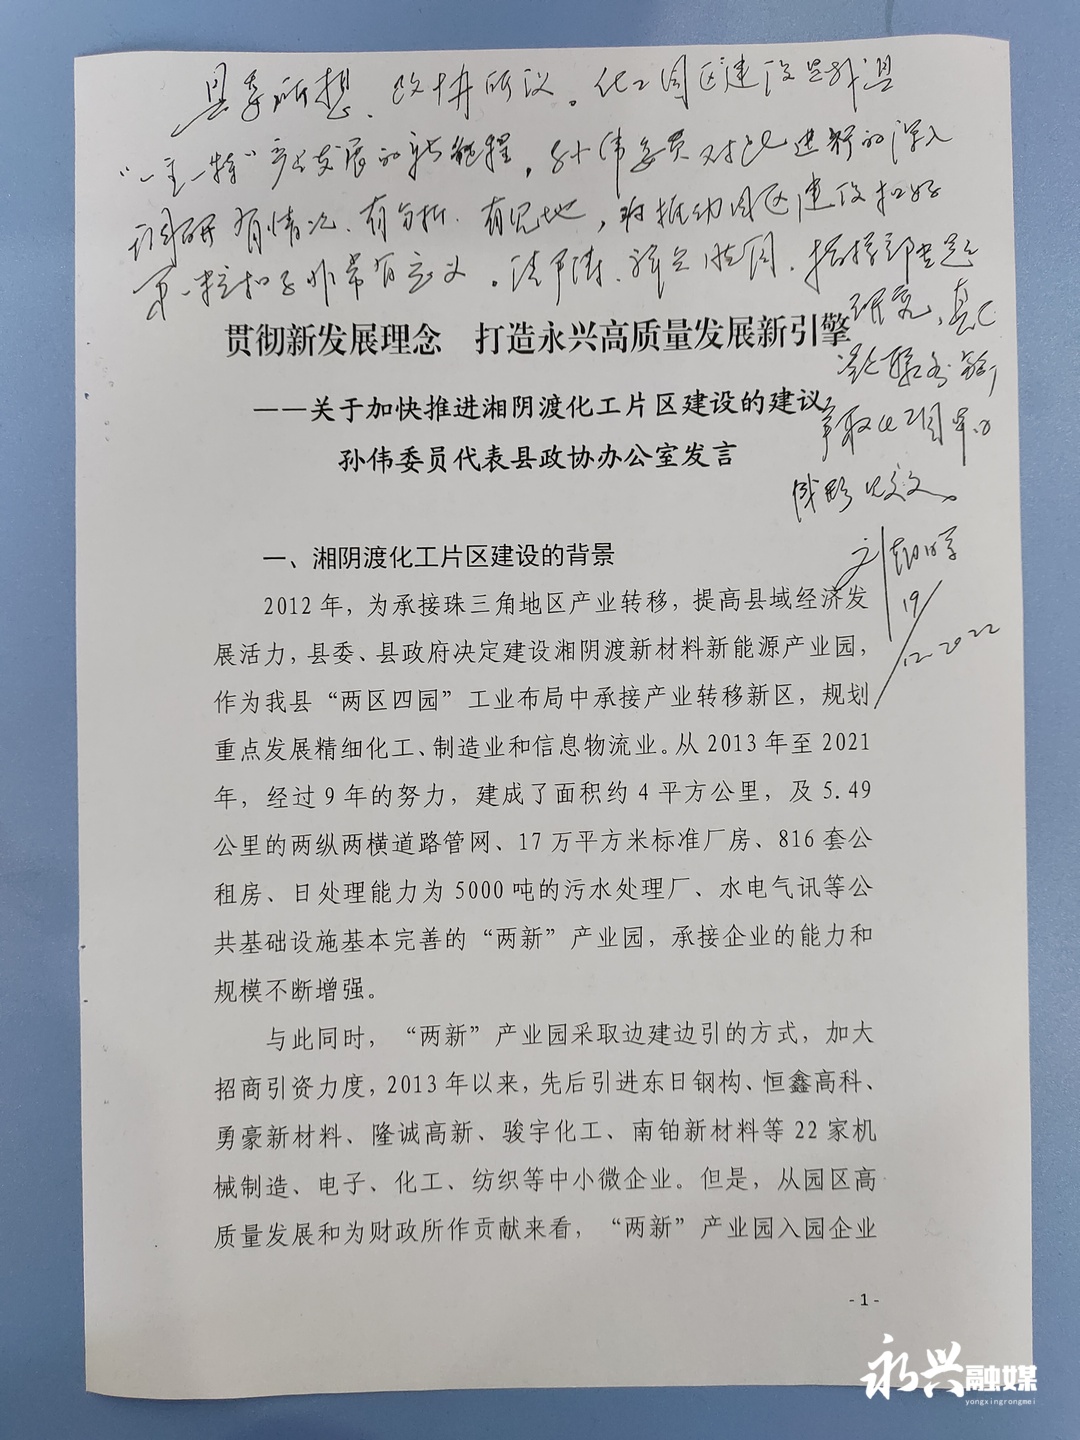 县委所想、政协所议。化工园区建设是我县
“一主一特”产业发展的新征程，孙伟委员对此进行的深入
调研有情况、有分析、有见地，对推动园区建设扣好
第一粒扣子非常有意义。请
研究，真
争取化工园早日
成形见效。
19/12.2022
贯彻新发展理念 打造永兴高质量发展新引擎
——关于加快推进湘阴渡化工片区建设的建议
孙伟委员代表县政协办公室发言
一、湘阴渡化工片区建设的背景
2012年，为承接珠三角地区产业转移，提高县域经济发
展活力，县委、县政府决定建设湘阴渡新材料新能源产业园，
作为我县“两区四园”工业布局中承接产业转移新区，规划
重点发展精细化工、制造业和信息物流业。从2013年至2021
年，经过9年的努力，建成了面积约4平方公里，及5.49
公里的两纵两横道路管网、17万平方米标准厂房、816套公
租房、日处理能力为5000吨的污水处理厂、水电气讯等公
共基础设施基本完善的“两新”产业园，承接企业的能力和
规模不断增强。
与此同时，“两新”产业园采取边建边引的方式，加大
招商引资力度，2013年以来，先后引进东日钢构、恒鑫高科、
勇豪新材料、隆诚高新、骏宇化工、南铂新材料等22家机
械制造、电子、化工、纺织等中小微企业。但是，从园区高
质量发展和为财政所作贡献来看，“两新”产业园入园企业
- 1 -
永兴融媒
yongxingrongmei